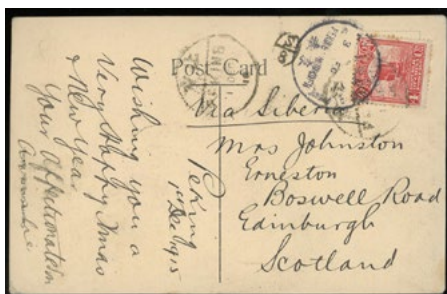 Post Card
Via Siberia
Mrs Johnston
Erneston
Boswell Road
Edinburgh
Scotland
Peking
1st Dec 1915
Wishing you a
Very Happy Xmas
& New Year.
Your Affectionate Son